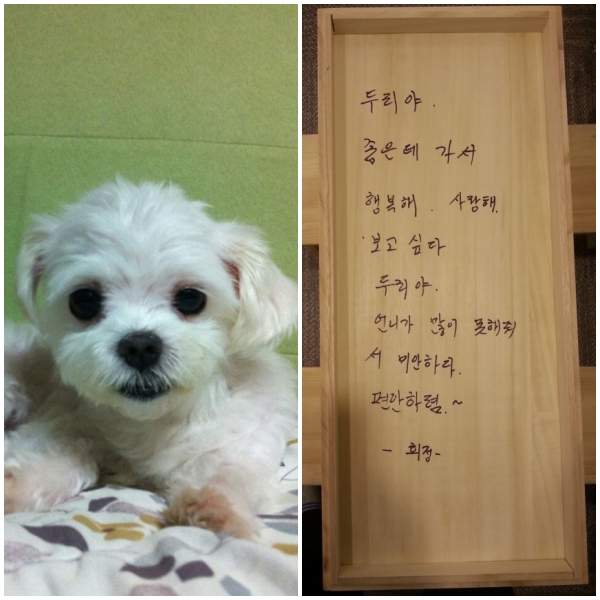 두리야.
좋은데 가서
행복해. 사랑해.
보고 싶다
두리야.
언니가 많이 못해줘
서 미안하다.
편안하렴.~
- 희정-